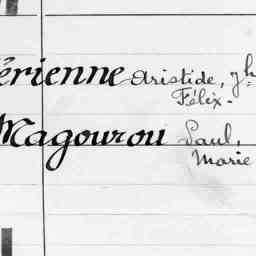 érienne Aristide, Jh
Félix.
Magourou Paul,
Marie